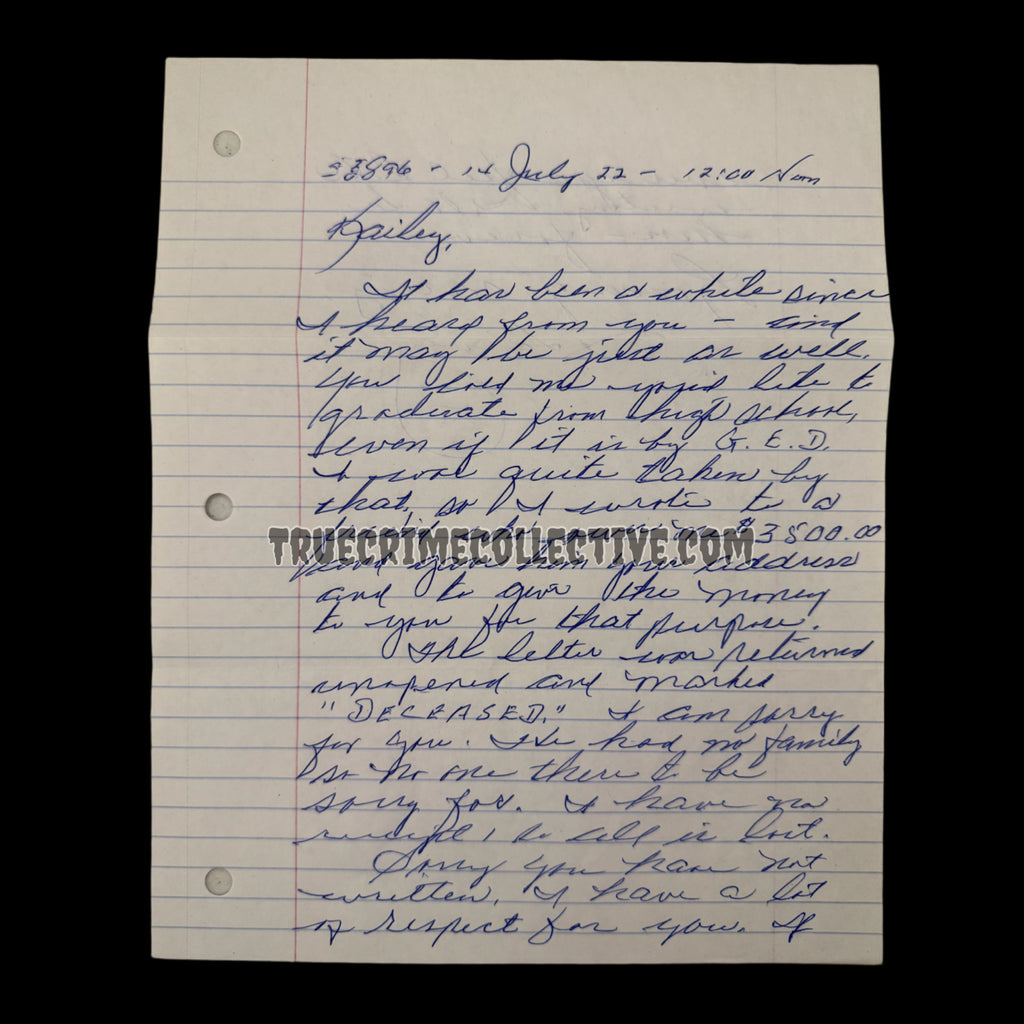 - 14 July 22 - 12:00 Noon
Kailey,
It has been a while since
I heard from you - and
it may be just as well.
You told me you'd like to
graduate from high school,
even if it is by G.E.D.
I was quite taken by
that, so I wrote to a
friend who owes me $3500.00
TRUECRIMECOLLECTIVE.COM
and gave him your address
and to give the money
to you for that purpose.
The letter was returned
unopened and marked
"DECEASED." I am sorry
for you. He had no family
so no one there to be
sorry for. I have no
receipt, so all is lost.
Sorry you have not
written. I have a lot
of respect for you. If